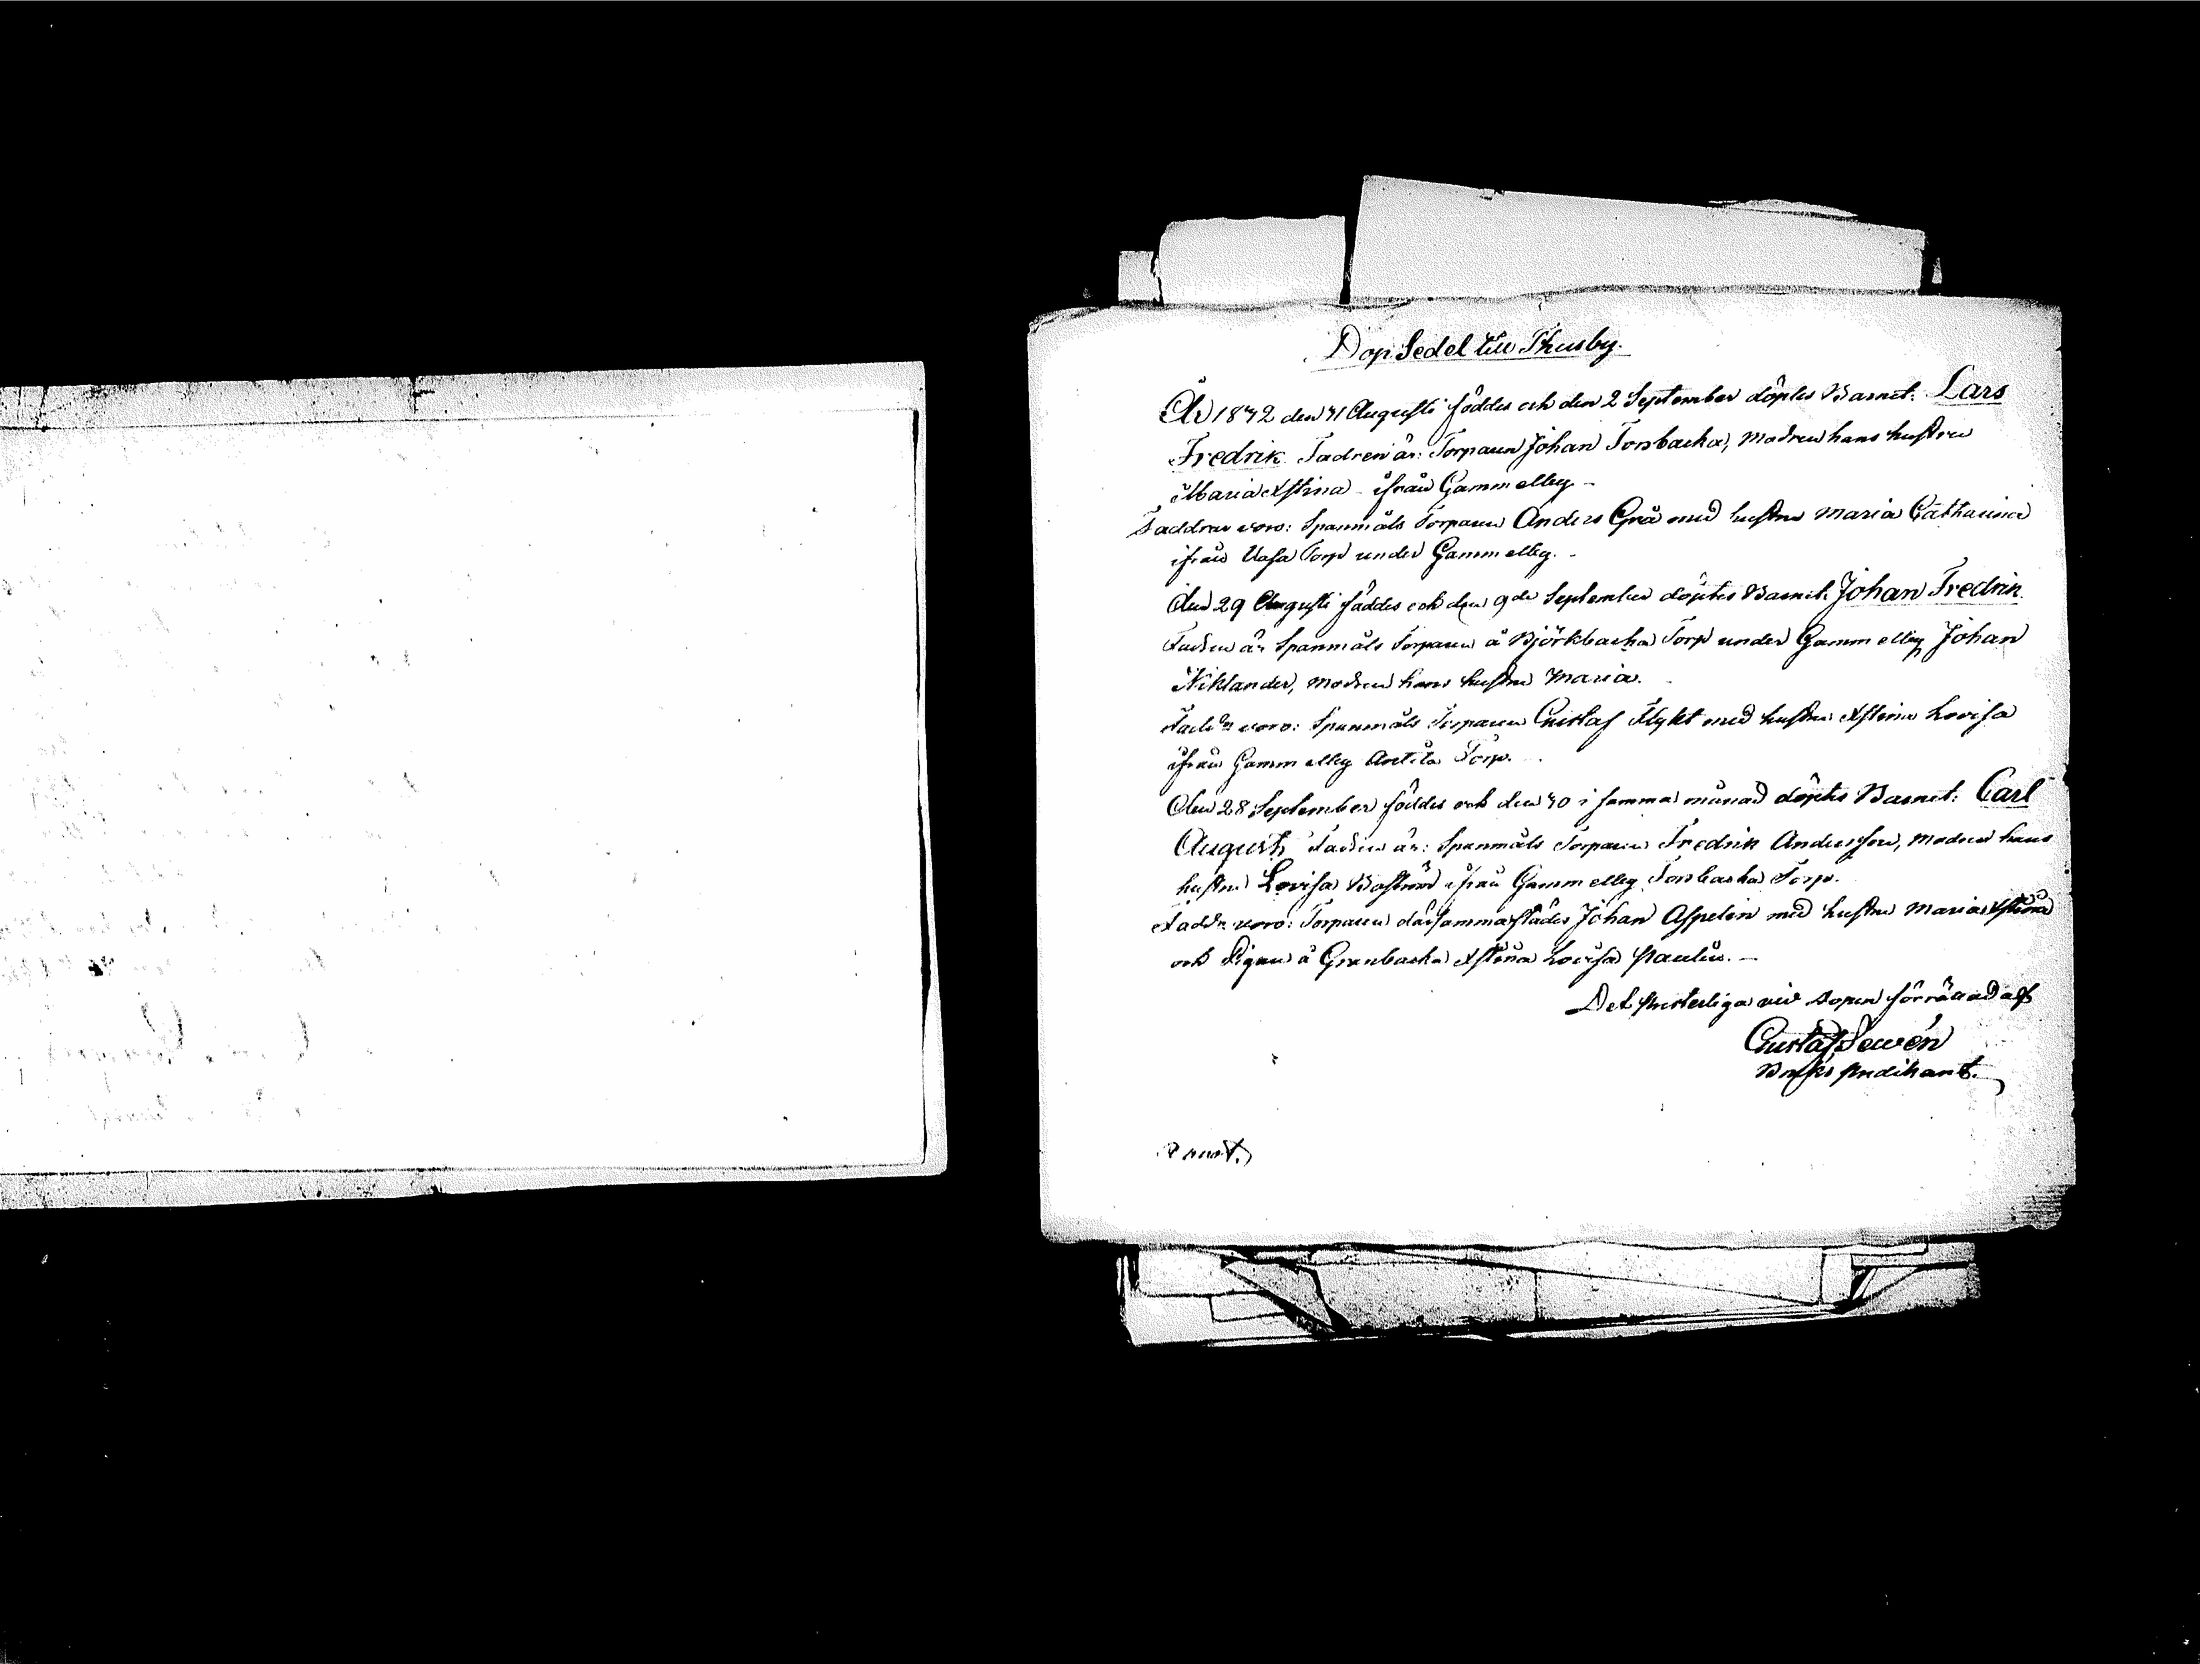 Dop Sedel till Thusby.
År 1842 den 31 Augusti föddes och den 2 September döptes Barnet: Lars
Fredrik. Fadren är: Torparen Johan Forsbacka, Modren hans hustru
Maria Xstina ifrån Gammelby –
Faddrar voro: Spanmåls Torparen Anders Grå med hustru Maria Catharina
ifrån Vasa Torp under Gammelby. –
Den 29 Augusti föddes och den 9de September döptes Barnet Johan Fredrik.
Fadren är Spanmåls Torparen å Björkbacka Torp under Gammelby Johan
Niklander, Modren hans hustru Maria.
Faddr voro: Spanmåls Torparen Gustaf Flykt med hustru Xstina Lovisa
ifrån Gammelby Antila Torp.
Den 28 September föddes och den 30 i samma månad döptes Barnet: Carl
August, Fadren är: Spanmåls Torparen Fredrik Andersson, Modren hans
hustru Lovisa Boström ifrån Gammelby Forsbacka Torp.
Faddr voro: Torparen därsammastädes Johan Aspelin med hustru Maria Xstina
och Pigan å Granbacka Xstina Lovisa Paulin. –
Det presterliga vid dopen förrättad af
Gustaf Sewén
Bruks predikant.